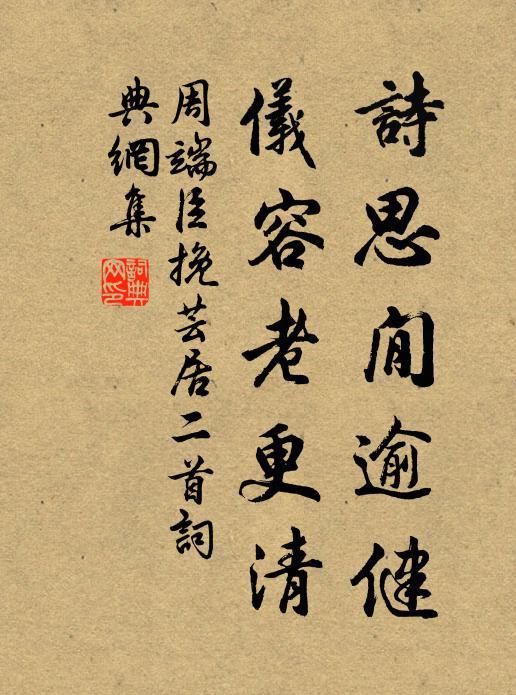 詩思閒逾健
儀容老更清
周端臣挽芸居二首詞
典網集
詞典網印